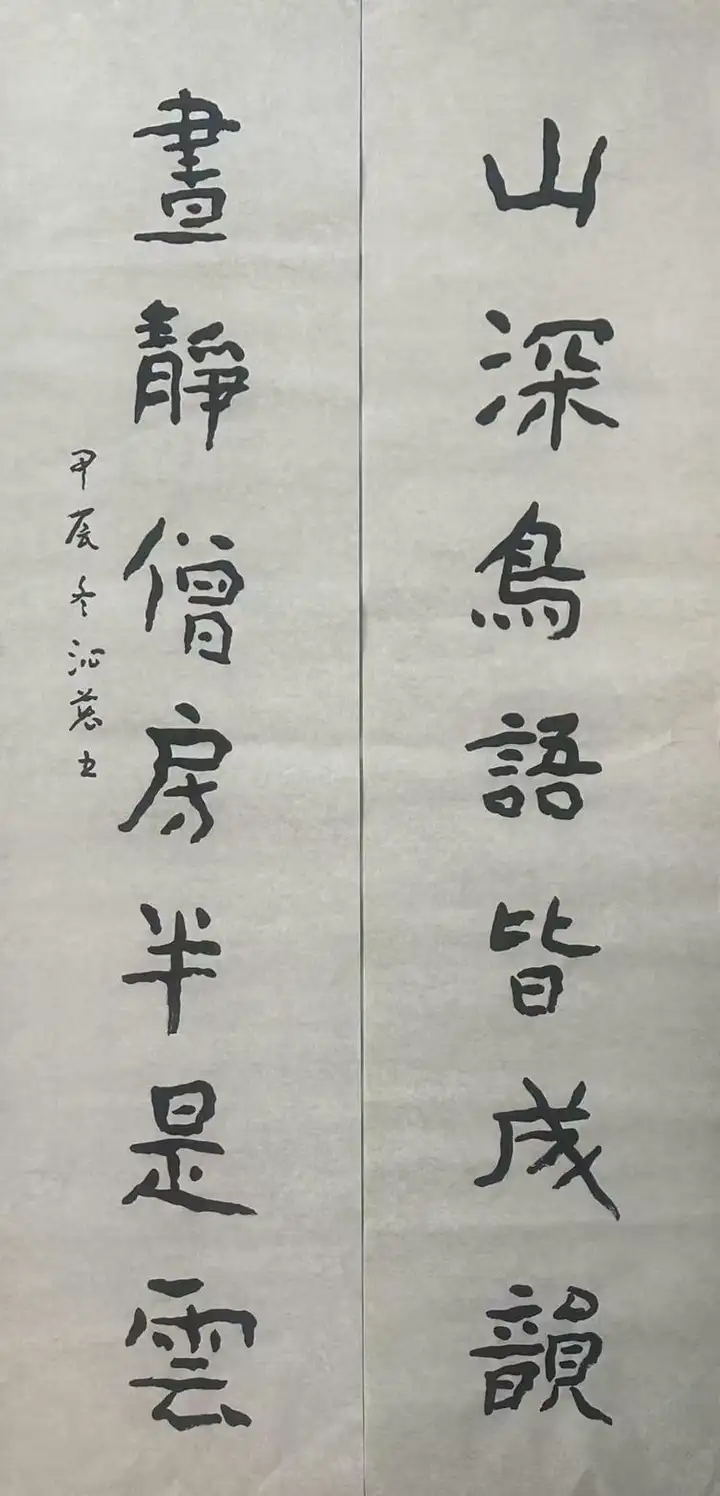 山深鳥語皆成韻
晝靜僧房半是雲
甲辰冬沁慕书